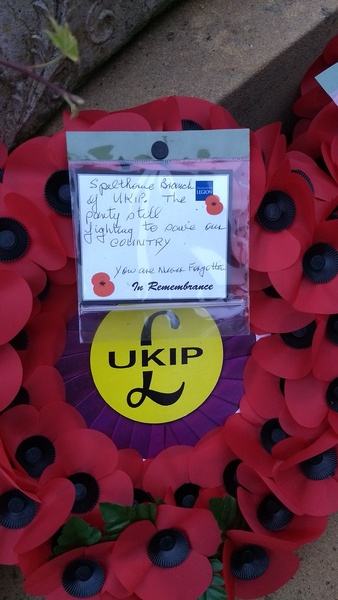 Spelthorne Branch
of UKIP. The
party still
fighting to save our
COUNTRY.
LEGION
You are Never Forgotten
In Remembrance
£
UKIP